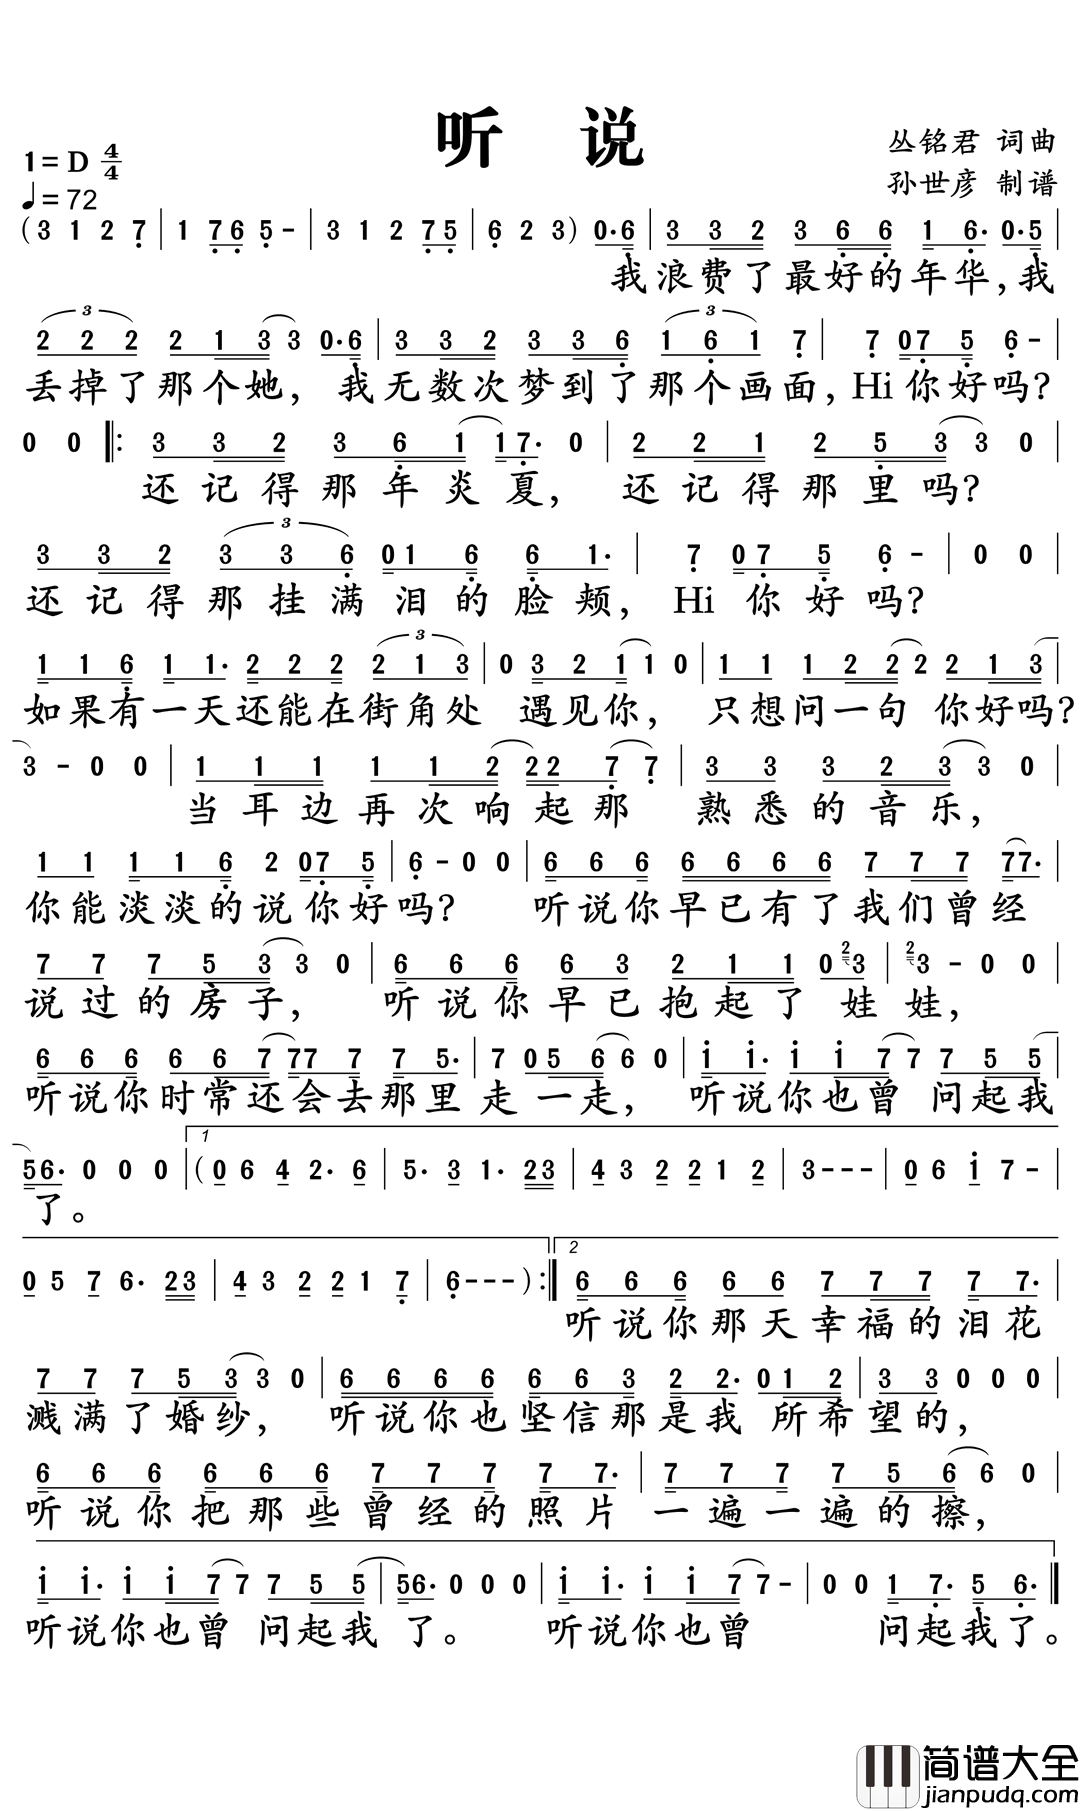 听 说
1=D 4/4
♩=72
丛铭君 词曲
孙世彦 制谱
(3 1 2 7 | 1 7 6 5 - | 3 1 2 7 5 | 6 2 3) 0·6 | 3 3 2 3 6 6 1 6· 0·5 |
我浪费了最好的年华,我
3 3
2 2 2 2 1 3 3 0·6 | 3 3 2 3 3 6 1 6 1 7 | 7 0 7 5 6 - |
丢掉了那个她, 我无数次梦到了那个画面, Hi你好吗?
0 0 ‖: 3 3 2 3 6 1 1 7· 0 | 2 2 1 2 5 3 3 0 |
还记得那年炎夏, 还记得那里吗?
3
3 3 2 3 3 6 0 1 6 6 1· | 7 0 7 5 6 - | 0 0 |
还记得那挂满泪的脸颊, Hi 你好吗?
3
1 1 6 1 1· 2 2 2 2 1 3 | 0 3 2 1 1 0 | 1 1 1 2 2 2 2 1 3
如果有一天还能在街角处 遇见你, 只想问一句 你好吗?
3 - 0 0 | 1 1 1 1 1 2 2 2 7 7 | 3 3 3 2 3 3 0 |
当耳边再次响起那 熟悉的音乐,
1 1 1 1 6 2 0 7 5 | 6 - 0 0 | 6 6 6 6 6 6 6 7 7 7 7 7· |
你能淡淡的说你好吗? 听说你早已有了我们曾经
7 7 7 5 3 3 0 | 6 6 6 6 3 2 1 1 0 2 3 | 2 3 - 0 0 |
说过的房子, 听说你早已抱起了 娃 娃,
6 6 6 6 6 7 7 7 7 7 5· | 7 0 5 6 6 0 | i i· i i 7 7 7 5 5
听说你时常还会去那里走一走, 听说你也曾 问起我
1
5 6· 0 0 0 | (0 6 4 2· 6 | 5· 3 1· 2 3 | 4 3 2 2 1 2 | 3 - - - | 0 6 i 7 - |
了。
2
0 5 7 6· 2 3 | 4 3 2 2 1 7 | 6 - - - ) :‖ 6 6 6 6 6 7 7 7 7 7· |
听说你那天幸福的泪花
7 7 7 5 3 3 0 | 6 6 6 6 6 6 3 2 2· 0 1 2 | 3 3 0 0 0 |
溅满了婚纱, 听说你也坚信那是我 所希望的,
6 6 6 6 6 6 7 7 7 7 7· | 7 7 7 7 5 6 6 0 |
听说你把那些曾经的照片 一遍一遍的擦,
i i· i i 7 7 7 5 5 | 5 6· 0 0 0 | i i· i i 7 7 - | 0 0 1 7· 5 6· ‖
听说你也曾 问起我 了。 听说你也曾 问起我了。
简谱大全
jianpudq.com